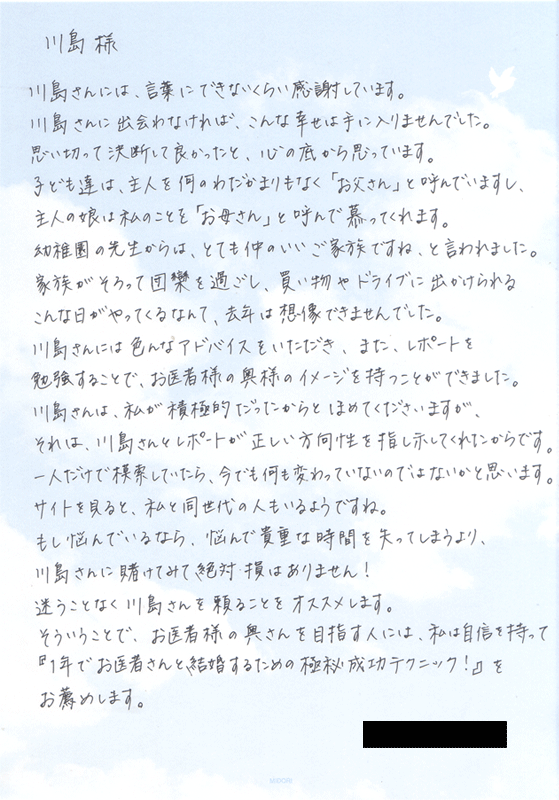 川島 様
川島さんには、言葉にできないくらい感謝しています。
川島さんに出会わなければ、こんな幸せは手に入りませんでした。
思い切って決断して良かったと、心の底から思っています。
子ども達は、主人を何のわだかまりもなく「お父さん」と呼んでいますし、
主人の娘は私のことを「お母さん」と呼んで慕ってくれます。
幼稚園の先生からは、とても仲のいいご家族ですね、と言われました。
家族がそろって団欒を過ごし、買い物やドライブに出かけられる
こんな日がやってくるなんて、去年は想像できませんでした。
川島さんには色んなアドバイスをいただき、また、レポートを
勉強することで、お医者様の奥様のイメージを持つことができました。
川島さんは、私が積極的だったからとほめてくださいますが、
それは、川島さんとレポートが正しい方向性を指し示してくれたからです。
一人だけで模索していたら、今でも何も変わっていないのではないかと思います。
サイトを見ると、私と同世代の人もいるようですね。
もし悩んでいるなら、悩んで貴重な時間を失ってしまうより、
川島さんに賭けてみて絶対損はありません！
迷うことなく川島さんを頼ることをオススメします。
そういうことで、お医者様の奥さんを目指す人には、私は自信を持って
『1年でお医者さんと結婚するための極秘成功テクニック！』を
お薦めします。